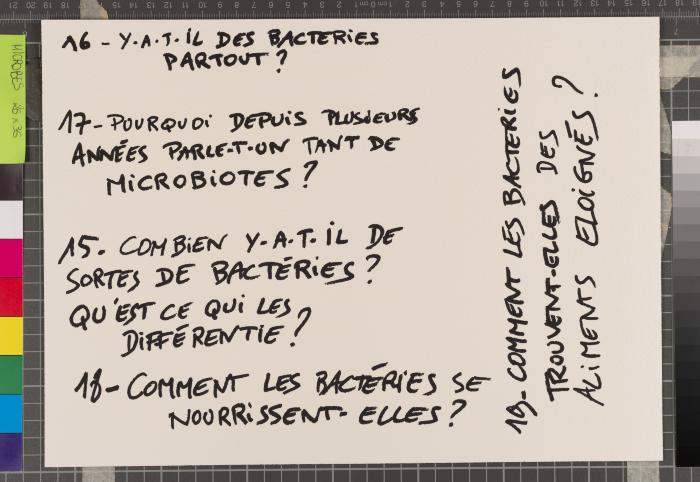 16 - Y.A.T.IL DES BACTERIES
PARTOUT ?
17- POURQUOI DEPUIS PLUSIEURS
ANNÉES PARLE-T-ON TANT DE
MICROBIOTES ?
15. COMBIEN Y.A.T.IL DE
SORTES DE BACTÉRIES ?
QU'EST CE QUI LES
DIFFÉRENTIE ?
18- COMMENT LES BACTÉRIES SE
NOURRISSENT- ELLES ?
19- COMMENT LES BACTERIES
TROUVENT-ELLES DES
ALIMENTS ELOIGNÉS ?
MICROBES